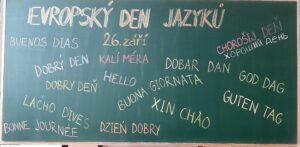 EVROPSKÝ DEN JAZYKŮ
BUENOS DIAS
26. září
CHOROŠIJ DEŇ
ХОРОШИЙ ДЕНЬ
DOBRÝ DEN
KALÍ MÉRA
DOBAR DAN
DOBRÝ DEŇ
HELLO
BUONA GIORNATA
GOD DAG
LACHO DIVES
XIN CHÀO
GUTEN TAG
BONNE JOURNÉE
DZIEŃ DOBRY